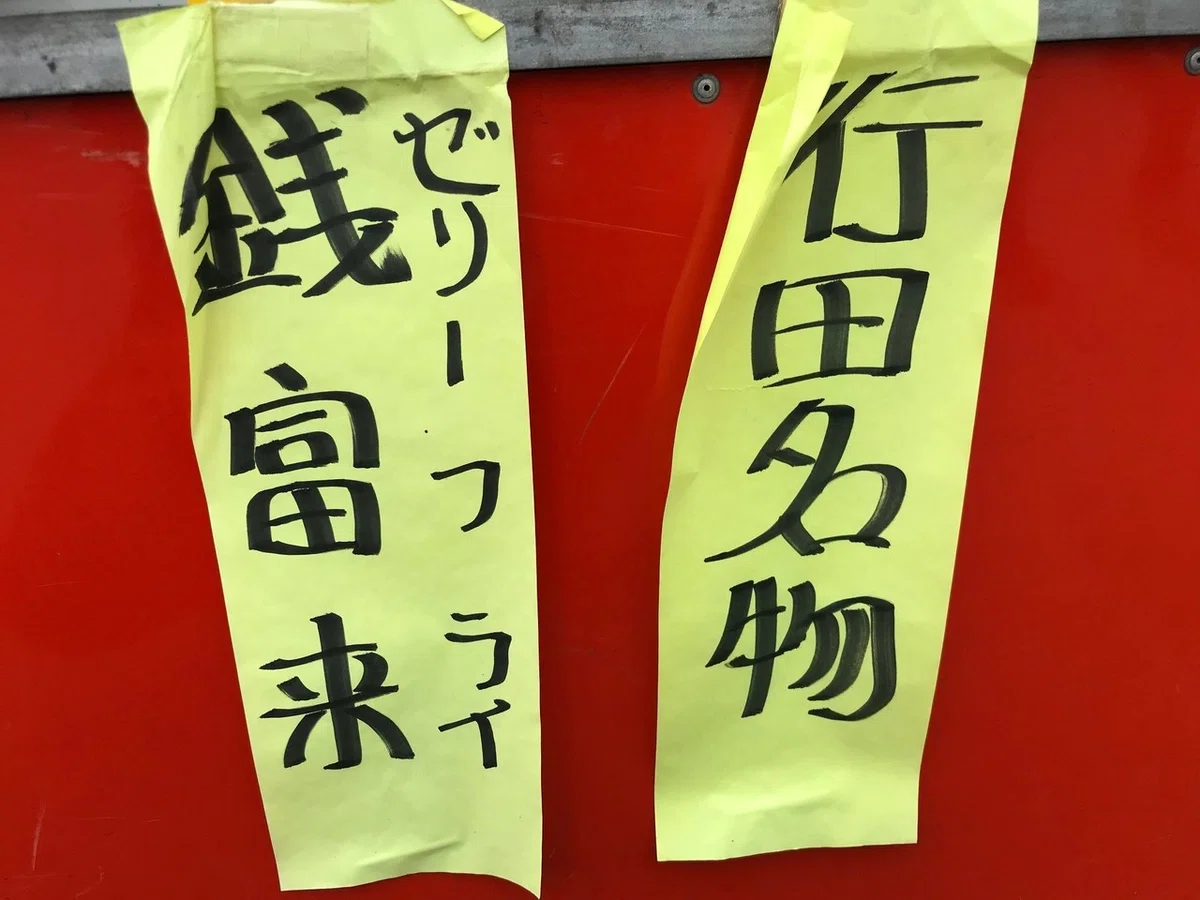 行田名物
ゼリーフライ
銭富来